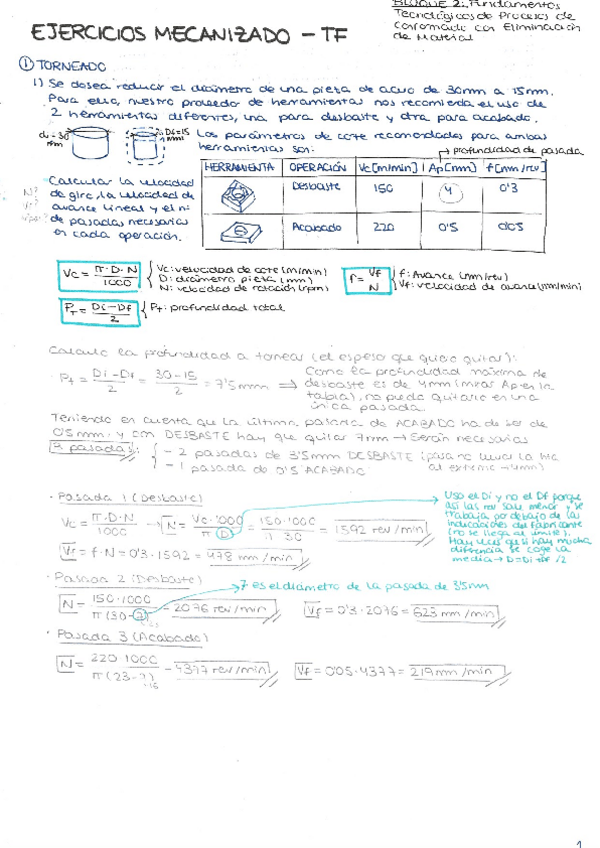 BLOQUE 2: Fundamentos
Tecnológicos de Procesos de
Conformado con Eliminación
de Material
EJERCICIOS MECANIZADO - TF
① TORNEADO
1) Se desea reducir el diámetro de una pieza de acero de 30mm a 15mm.
Para ello, nuestro proveedor de herramientas nos recomienda el uso de
2 herramientas diferentes, una para desbaste y otra para acabado.
Los parámetros de corte recomendados para ambas
herramientas son:
profundidad de pasada
HERRAMIENTA OPERACIÓN Vc[m/min] Ap[mm] f[mm/rev]
Desbaste 150 4 0'3
Acabado 220 0'5 0'05
Calcular la velocidad
de giro, la velocidad de
avance lineal y el nº
de pasadas necesarias
en cada operación.
Vc = π·D·N / 1000
Vc: velocidad de corte (m/min)
D: diámetro pieza (mm)
N: velocidad de rotación (rpm)
f = Vf / N
f: Avance (mm/rev)
Vf: velocidad de avance (mm/min)
PT = Di - Df / 2
PT: profundidad total
Calculo la profundidad a tornear (el espesor que quiero quitar):
· Pt = Di - Df / 2 = 30 - 15 / 2 = 7'5mm ⇒
Como la profundidad máxima de
desbaste es de 4mm (mirar Ap en la
tabla), no puedo quitarlo en una
única pasada.
Teniendo en cuenta que la última pasada de ACABADO ha de ser de
0'5mm, y con DESBASTE hay que quitar 7mm → Serán necesarias
3 pasadas:
- 2 pasadas de 3'5mm DESBASTE (para no llevar la hta
al extremo → 4mm)
- 1 pasada de 0'5 ACABADO
· Pasada 1 (Desbaste)
Vc = π·D·N / 1000 → N = Vc·1000 / π D = 150·1000 / π 30 = 1592 rev/min
Uso el Di y no el Df porque
así las rev son menor y se
trabaja por debajo de las
indicaciones del fabricante
(no se llega al límite).
Hay veces que si hay mucha
diferencia se coge la
media → D = Di + Df / 2
Vf = f·N = 0'3·1592 = 478 mm/min
· Pasada 2 (Desbaste)
7 es el diámetro de la pasada de 3'5mm
N = 150·1000 / π (30-7) = 2076 rev/min
Vf = 0'3·2076 = 623 mm/min
· Pasada 3 (Acabado)
N = 220·1000 / π (23-7) = 4377 rev/min
16
Vf = 0'05·4377 = 219 mm/min
1